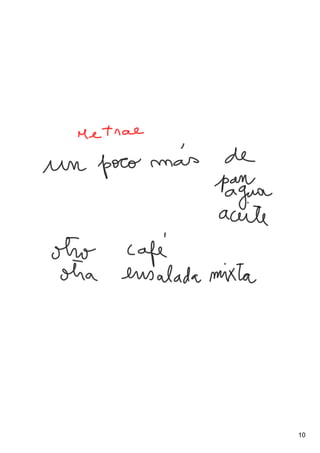 Me trae
un poco más de
pan
agua
aceite
otro café
otra ensalada mixta
10